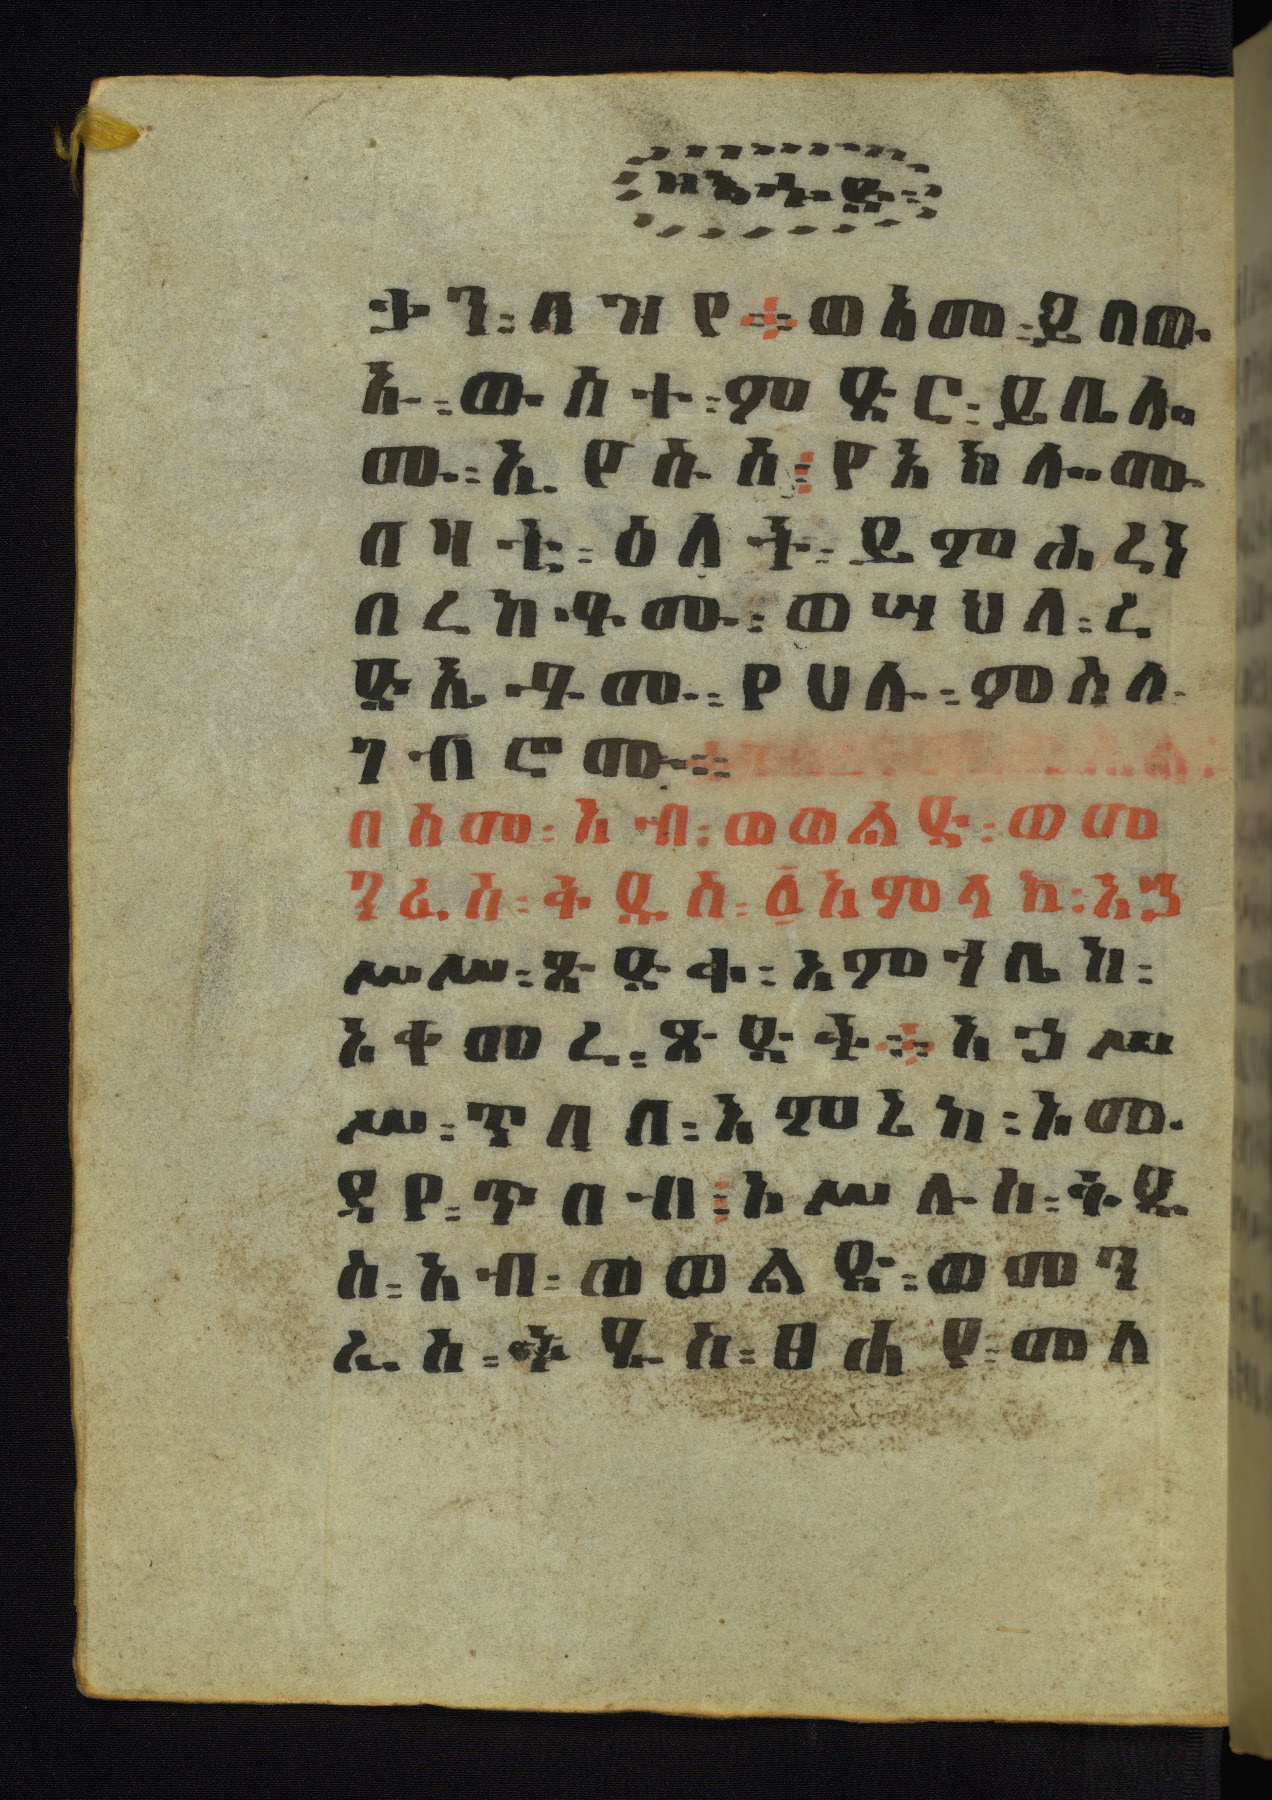 ዘእሑድ፡
ቃን፡ለዝየ፨ወእመ፡ይበው
እ፡ውስተ፡ምድር፡ይቤሎ
ሙ፡ኢየሱስ፡የአክሎሙ
በዛቲ፡ዕለት፡ይምሐረነ
በረከቶሙ፡ወሣህለ፡ረ
ድኤቶሙ፡የሀሉ፡ምስለ
ገብሮሙ፡፡
በስመ፡አብ፡ወወልድ፡ወመ
ንፈስ፡ቅዱስ፡፩አምላክ፡እኅ
ሥሥ፡ጽድቀ፡እምኀቤከ፡
አቀመረ፡ጽድቅ፨እኅሥ
ሥ፡ጥበበ፡እምኔከ፡አመ
ድየ፡ጥበብ፡እሥሉስ፡ቅዱ
ስ፡አብ፡ወወልድ፡ወመን
ፈስ፡ቅዱስ፡ፀሐየ፡መለ